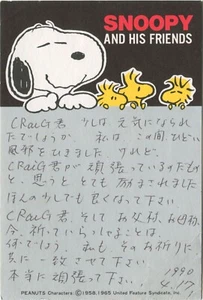 SNOOPY
AND HIS FRIENDS
CRaiG君 少しは元気になられ
たでしょうか。私は この間ひどい
風邪をひきました。けれど、
CRaiG君が頑張っているのだもの
と、思うと とても 励まされました
ほんの少しでも 良くなって下さい
CRaiG君、そして お父様、お母様
今、祈っていらっしゃることは、
何でしょう。私も そのお祈りに
共に 致させて下さい。
本当に 頑張って下さい。 1990
4.17
PEANUTS Characters ©1958,1965 United Feature Syndicate, Inc.